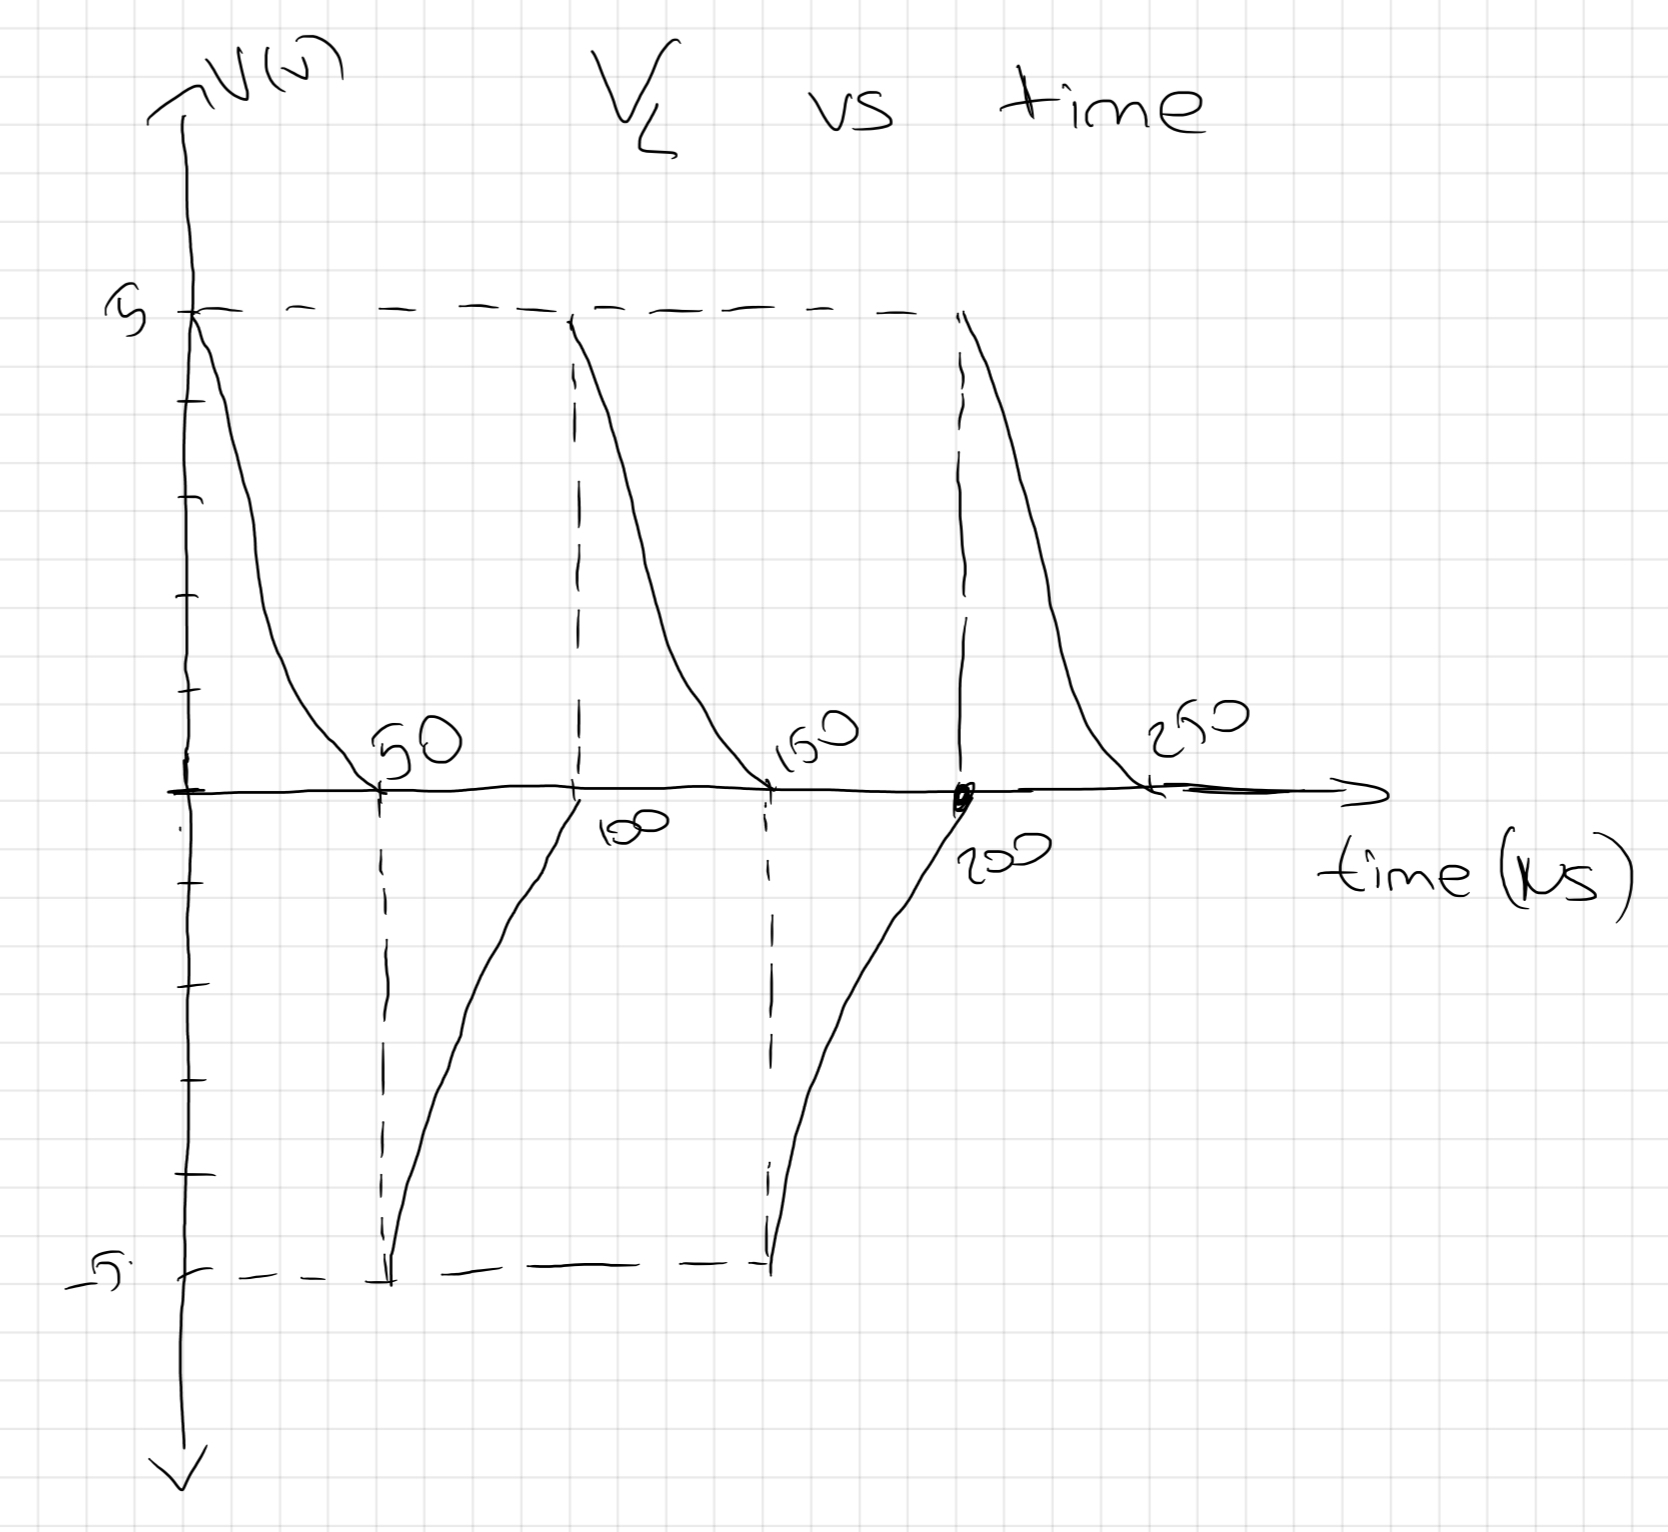 V(v)
V_L vs time
5
50
150
250
100
200
time (μs)
-5